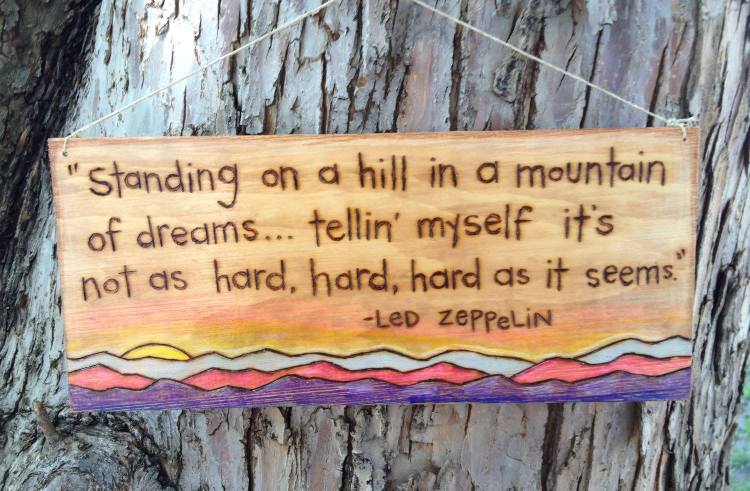 "Standing on a hill in a mountain
of dreams... tellin' myself it's
not as hard, hard, hard as it seems."
-LeD ZePPeLiN